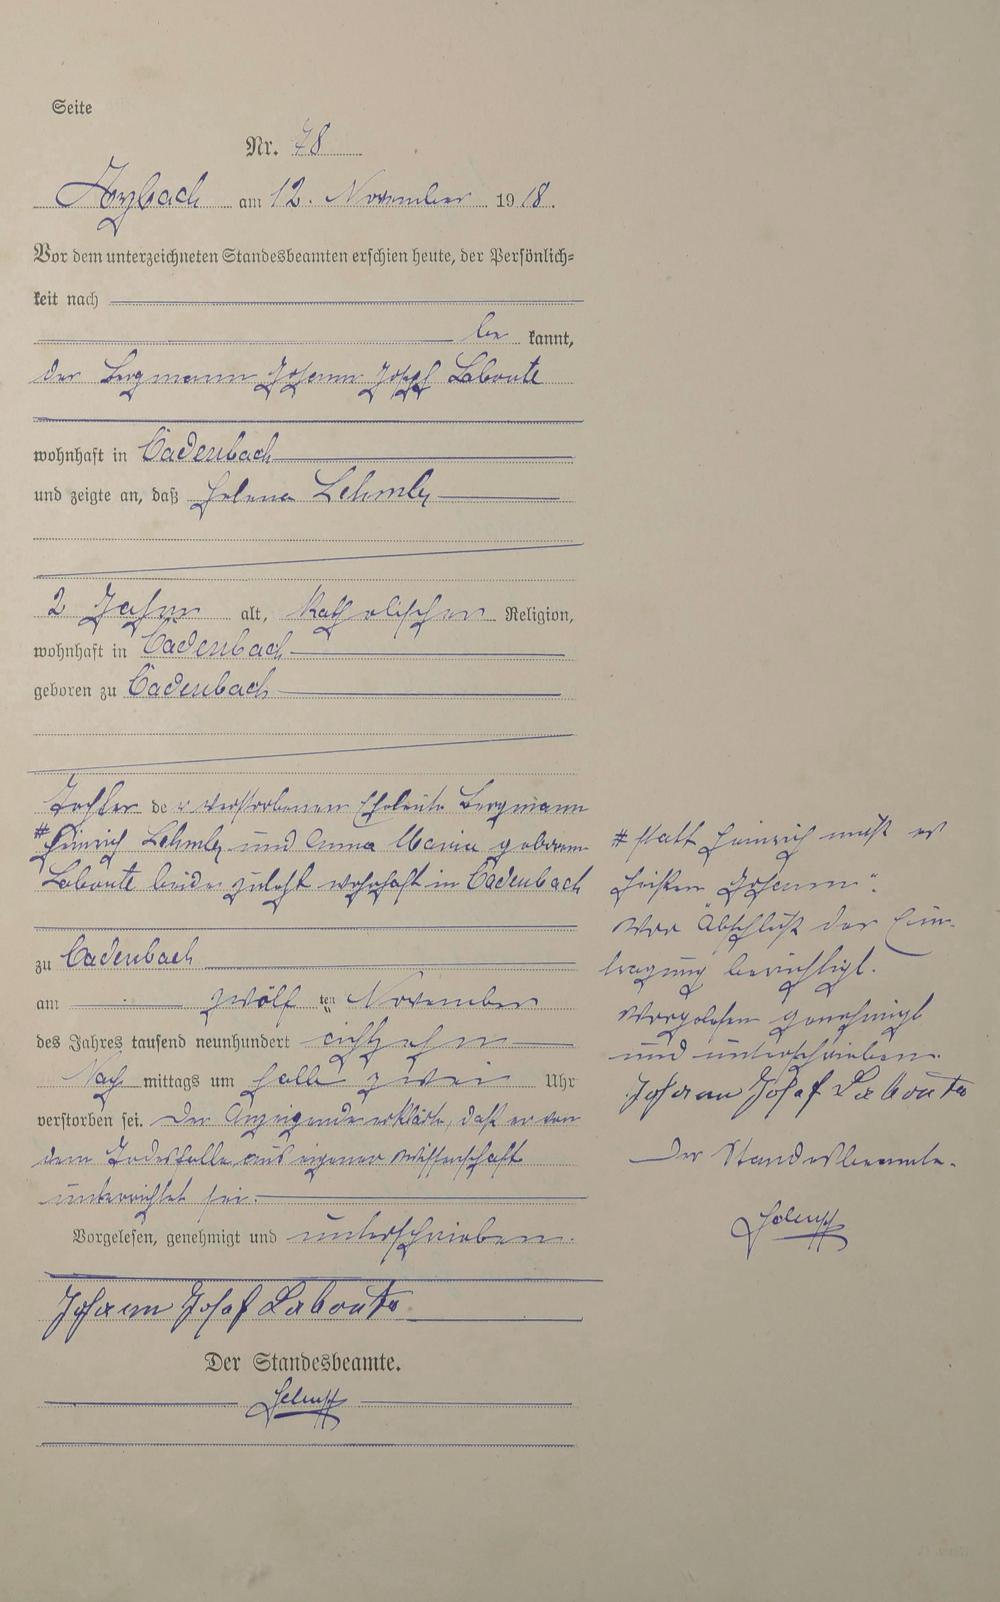 Seite
Nr. 78
Arzbach am 12. November 1918.
Vor dem unterzeichneten Standesbeamten erschien heute, der Persönlich=
keit nach
be kannt,
der Bergmann Johann Josef Laboute
wohnhaft in Cadenbach
und zeigte an, daß Helena Lehmler
2 Jahre alt, katholischer Religion,
wohnhaft in Cadenbach
geboren zu Cadenbach
Tochter der verstorbenen Eheleute Bergmann
# Heinrich Lehmler und Anna Maria geborene
Laboute beide zuletzt wohnhaft in Cadenbach
zu Cadenbach
am zwölf ten November
des Jahres tausend neunhundert achtzehn
Nach mittags um halb zwei Uhr
verstorben sei. Der Anzeigende erklärte, daß er von
dem Todesfalle aus eigener Wissenschaft
unterrichtet sei.
Vorgelesen, genehmigt und unterschrieben.
Johann Josef Laboute
Der Standesbeamte.
# statt Heinrich muß es
heißen Johann".
Vor Abschluß der Ein-
tragung berichtigt.
Vorgelesen genehmigt
und unterschrieben.
Johann Josef Laboute
Der Standesbeamte.